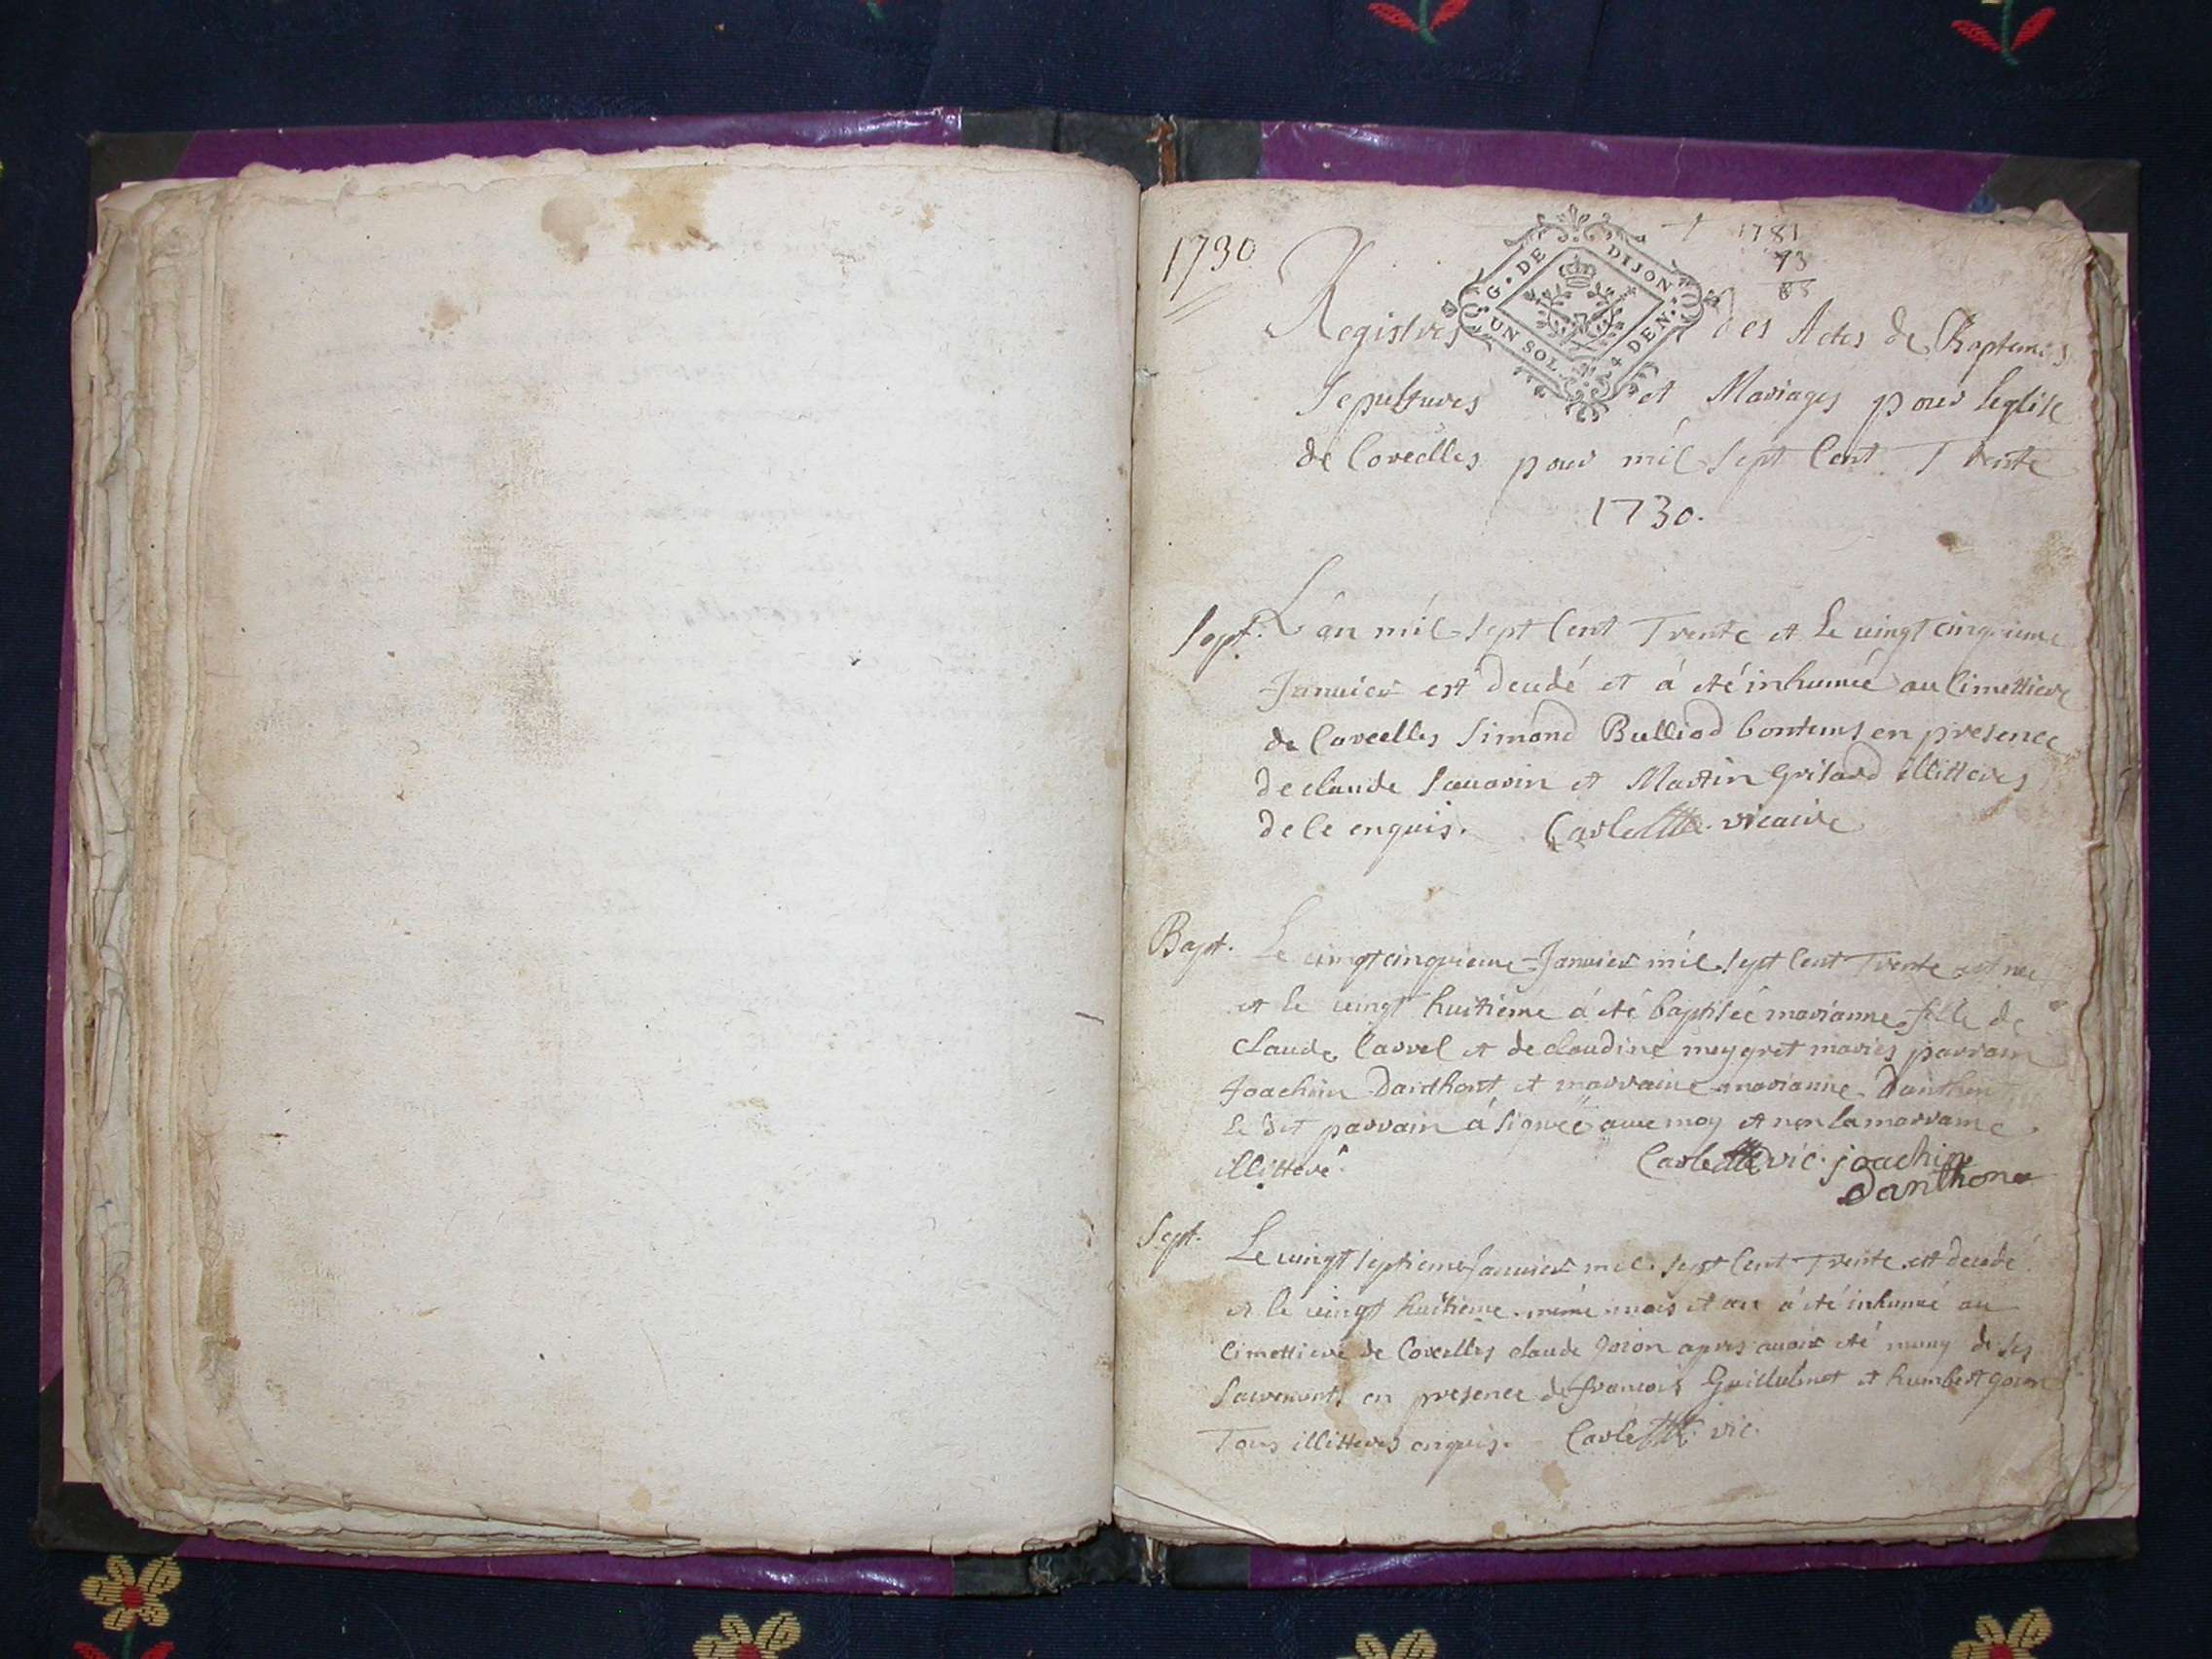 1730
1781
73
G. DE DIJON
UN SOL + DEN.
Registres des Actes de Baptemes
Sepultures et Mariages pour leglise
de Corcelles pour mil sept Cent Trente
1730.
Sept. L'an mil sept Cent Trente et Le vingt cinquieme
Januier est decedé et á été inhumé au Cimettiere
de Corcelles Simond Bulliod bontems en presence
de claude Sauarin et Martin Grisard illitteres
de ce enquis. Carlette vicaire
Bapt. Le vingt cinquieme Januier mil sept Cent Trente est nee
et le vingt huitieme á été baptisée marianne fille de
Claude Carrel et de claudine meygret mariés parrain
Joachim Danthont et marraine marianne Danthon
Le dit parrain á signeé auec moy et non la marraine
illitteré.
Carlette vic. joachin
Danthon
Sept. Le vingt septieme Januier mil sept Cent Trente est decedé
et le vingt huitieme même mois et an á été inhumé au
Cimettiere de Corcelles claude Goion apres auoir été muny de ses
Sacrements en presence de francois Guillelmot et humbert goion
Tous illitteres enquis. Carlette vic.